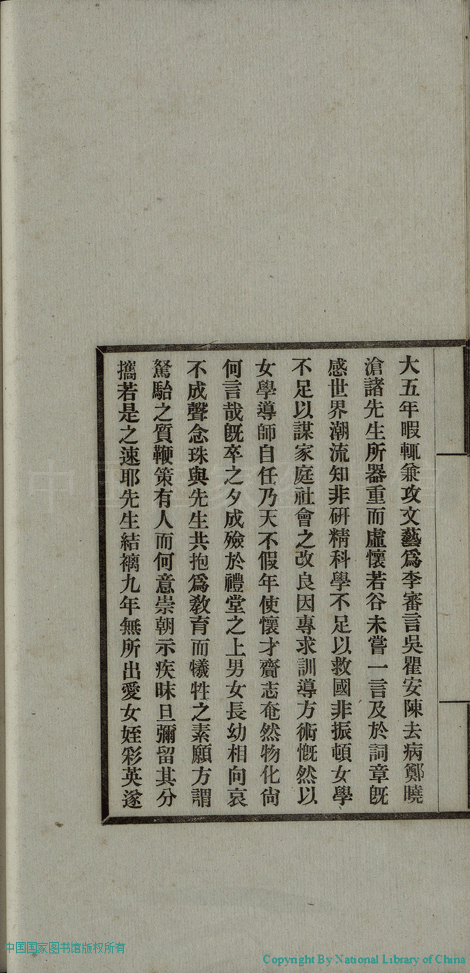 大五年暇輒兼攻文藝爲李審言吳瞿安陳去病鄭曉
滄諸先生所器重而虛懷若谷未嘗一言及於詞章旣
感世界潮流知非硏精科學不足以救國非振頓女學
不足以謀家庭社會之改良因專求訓導方術慨然以
女學導師自任乃天不假年使懷才齎志奄然物化尙
何言哉旣卒之夕成殮於禮堂之上男女長幼相向哀
不成聲念珠與先生共抱爲敎育而犧牲之素願方謂
駑駘之質鞭策有人而何意崇朝示疾昧旦彌留其分
攜若是之速耶先生結褵九年無所出愛女姪彩英遂
中国国家图书馆版权所有
Copyright By National Library of China